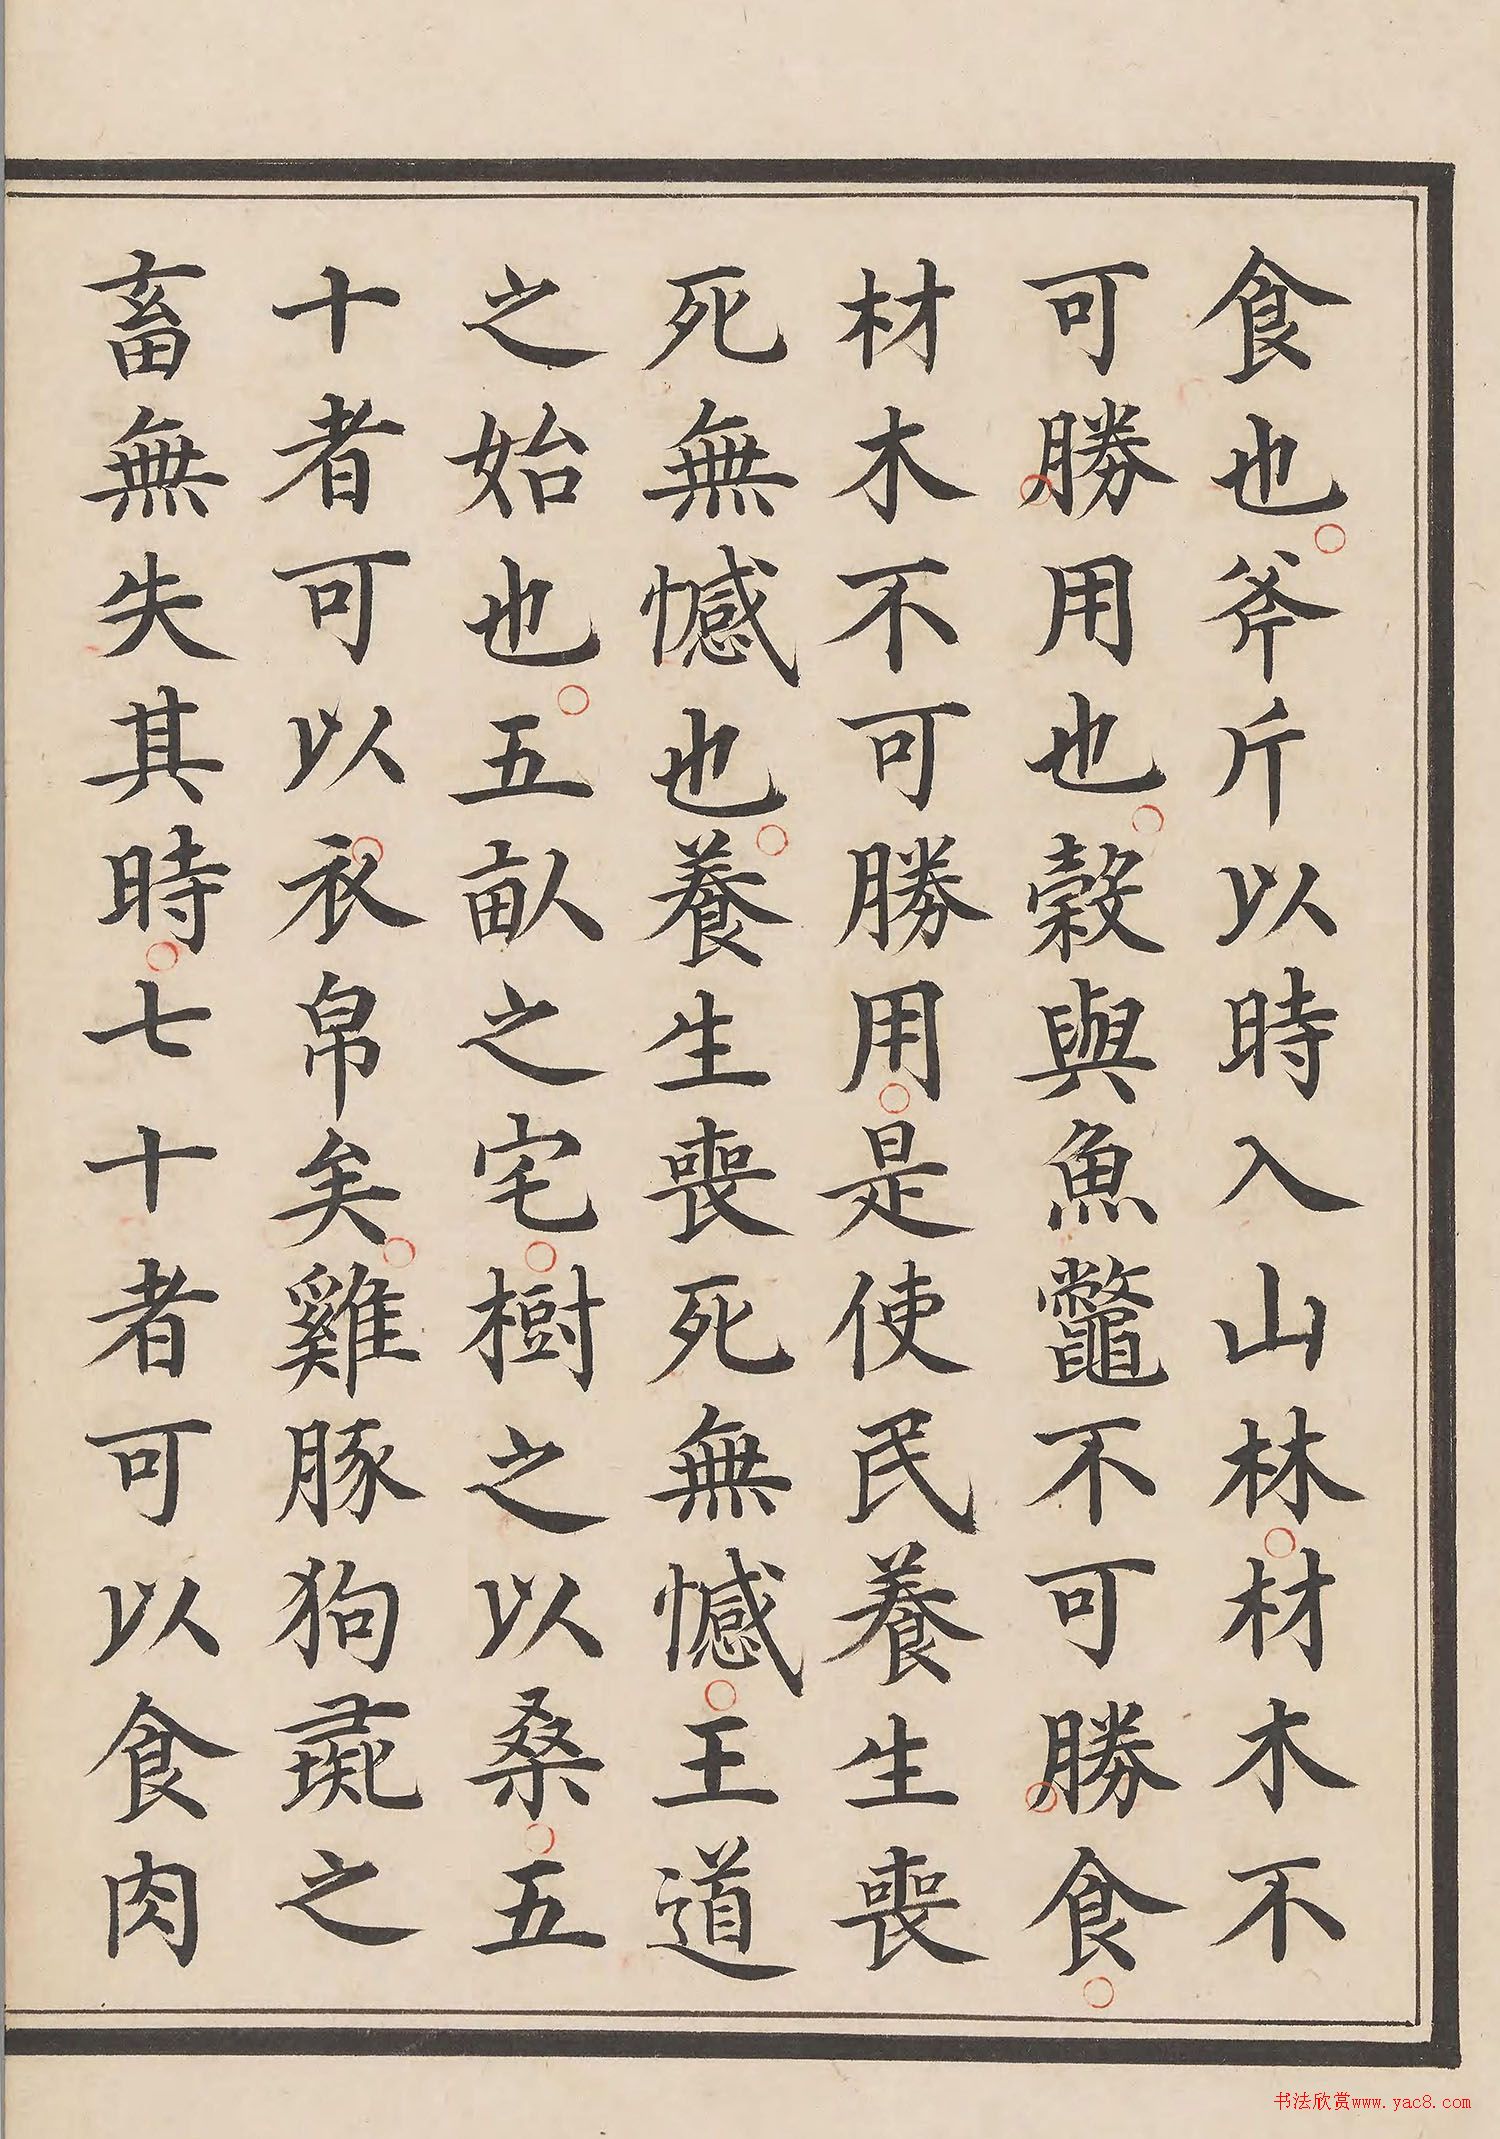 食也斧斤以時入山林材木不
可勝用也穀與魚鼈不可勝食
材木不可勝用是使民養生喪
死無憾也養生喪死無憾王道
之始也五畝之宅樹之以桑五
十者可以衣帛矣雞豚狗彘之
畜無失其時七十者可以食肉
书法欣赏www.yac8.com